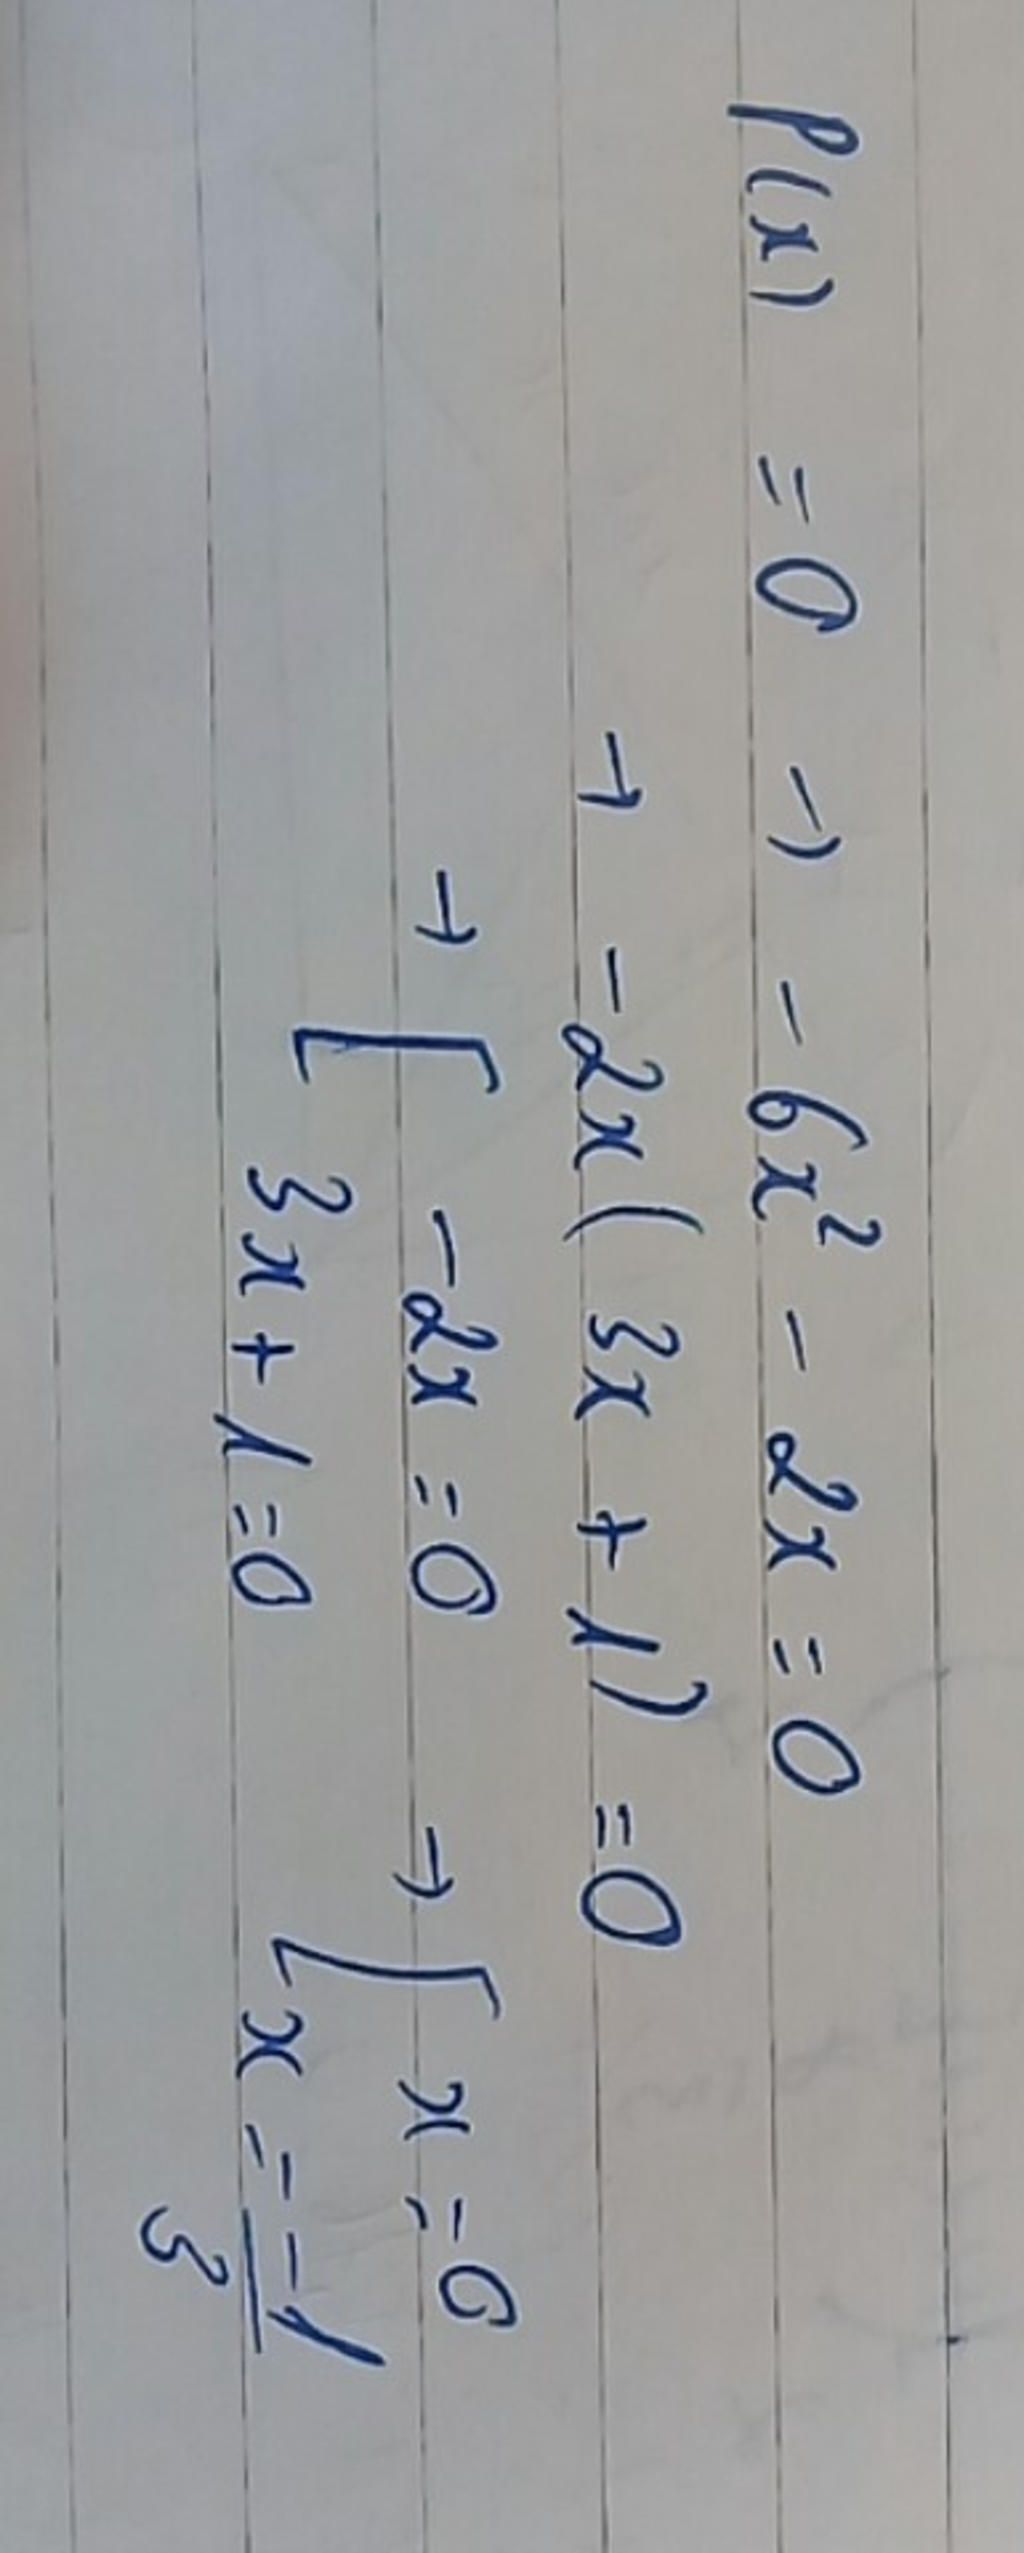 P(x) = 0 → - 6x² - 2x = 0
→ - 2x ( 3x + 1) = 0
→ [ -2x = 0 → [ x = 0
3x + 1 = 0 x = -1/3